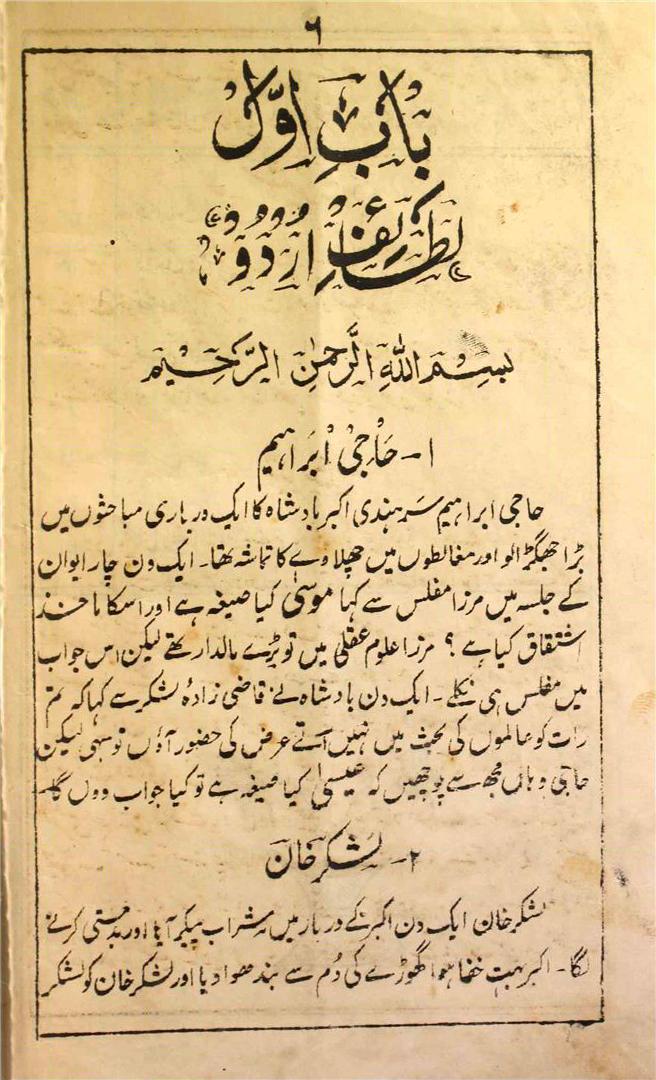 ۶
باب اوّل
لطائف اُردو
بسم اللہ الرحمٰن الرحیم
۱- حاجی ابراہیم
حاجی ابراہیم سرہندی اکبر بادشاہ کا ایک درباری مباحثوں میں
بڑا جھگڑالو اور مغالطوں میں چھلاوے کا تماشہ تھا۔ ایک دن چار ایوان
کے جلسہ میں مرزا مفلس سے کہا موسیٰ کیا صیغہ ہے اور اسکا ماخذ
اشتقاق کیا ہے ؟ مرزا علوم عقلی میں تو بڑے مالدار تھے لیکن اس جواب
میں مفلس ہی نکلے۔ ایک دن بادشاہ نے قاضی زادہ لشکر سے کہا کہ تم
رات کو عالموں کی بحث میں نہیں آتے عرض کی حضور آؤں تو سہی لیکن
حاجی وہاں مجھ سے پوچھیں کہ عیسیٰ کیا صیغہ ہے تو کیا جواب دوں گا۔
۲- لشکر خان
لشکر خان ایک دن اکبر کے دربار میں شراب پیکر آیا اور بدمستی کرنے
لگا۔ اکبر بہت خفا ہوا گھوڑے کی دُم سے بندھوا دیا اور لشکر خان کو لشکر